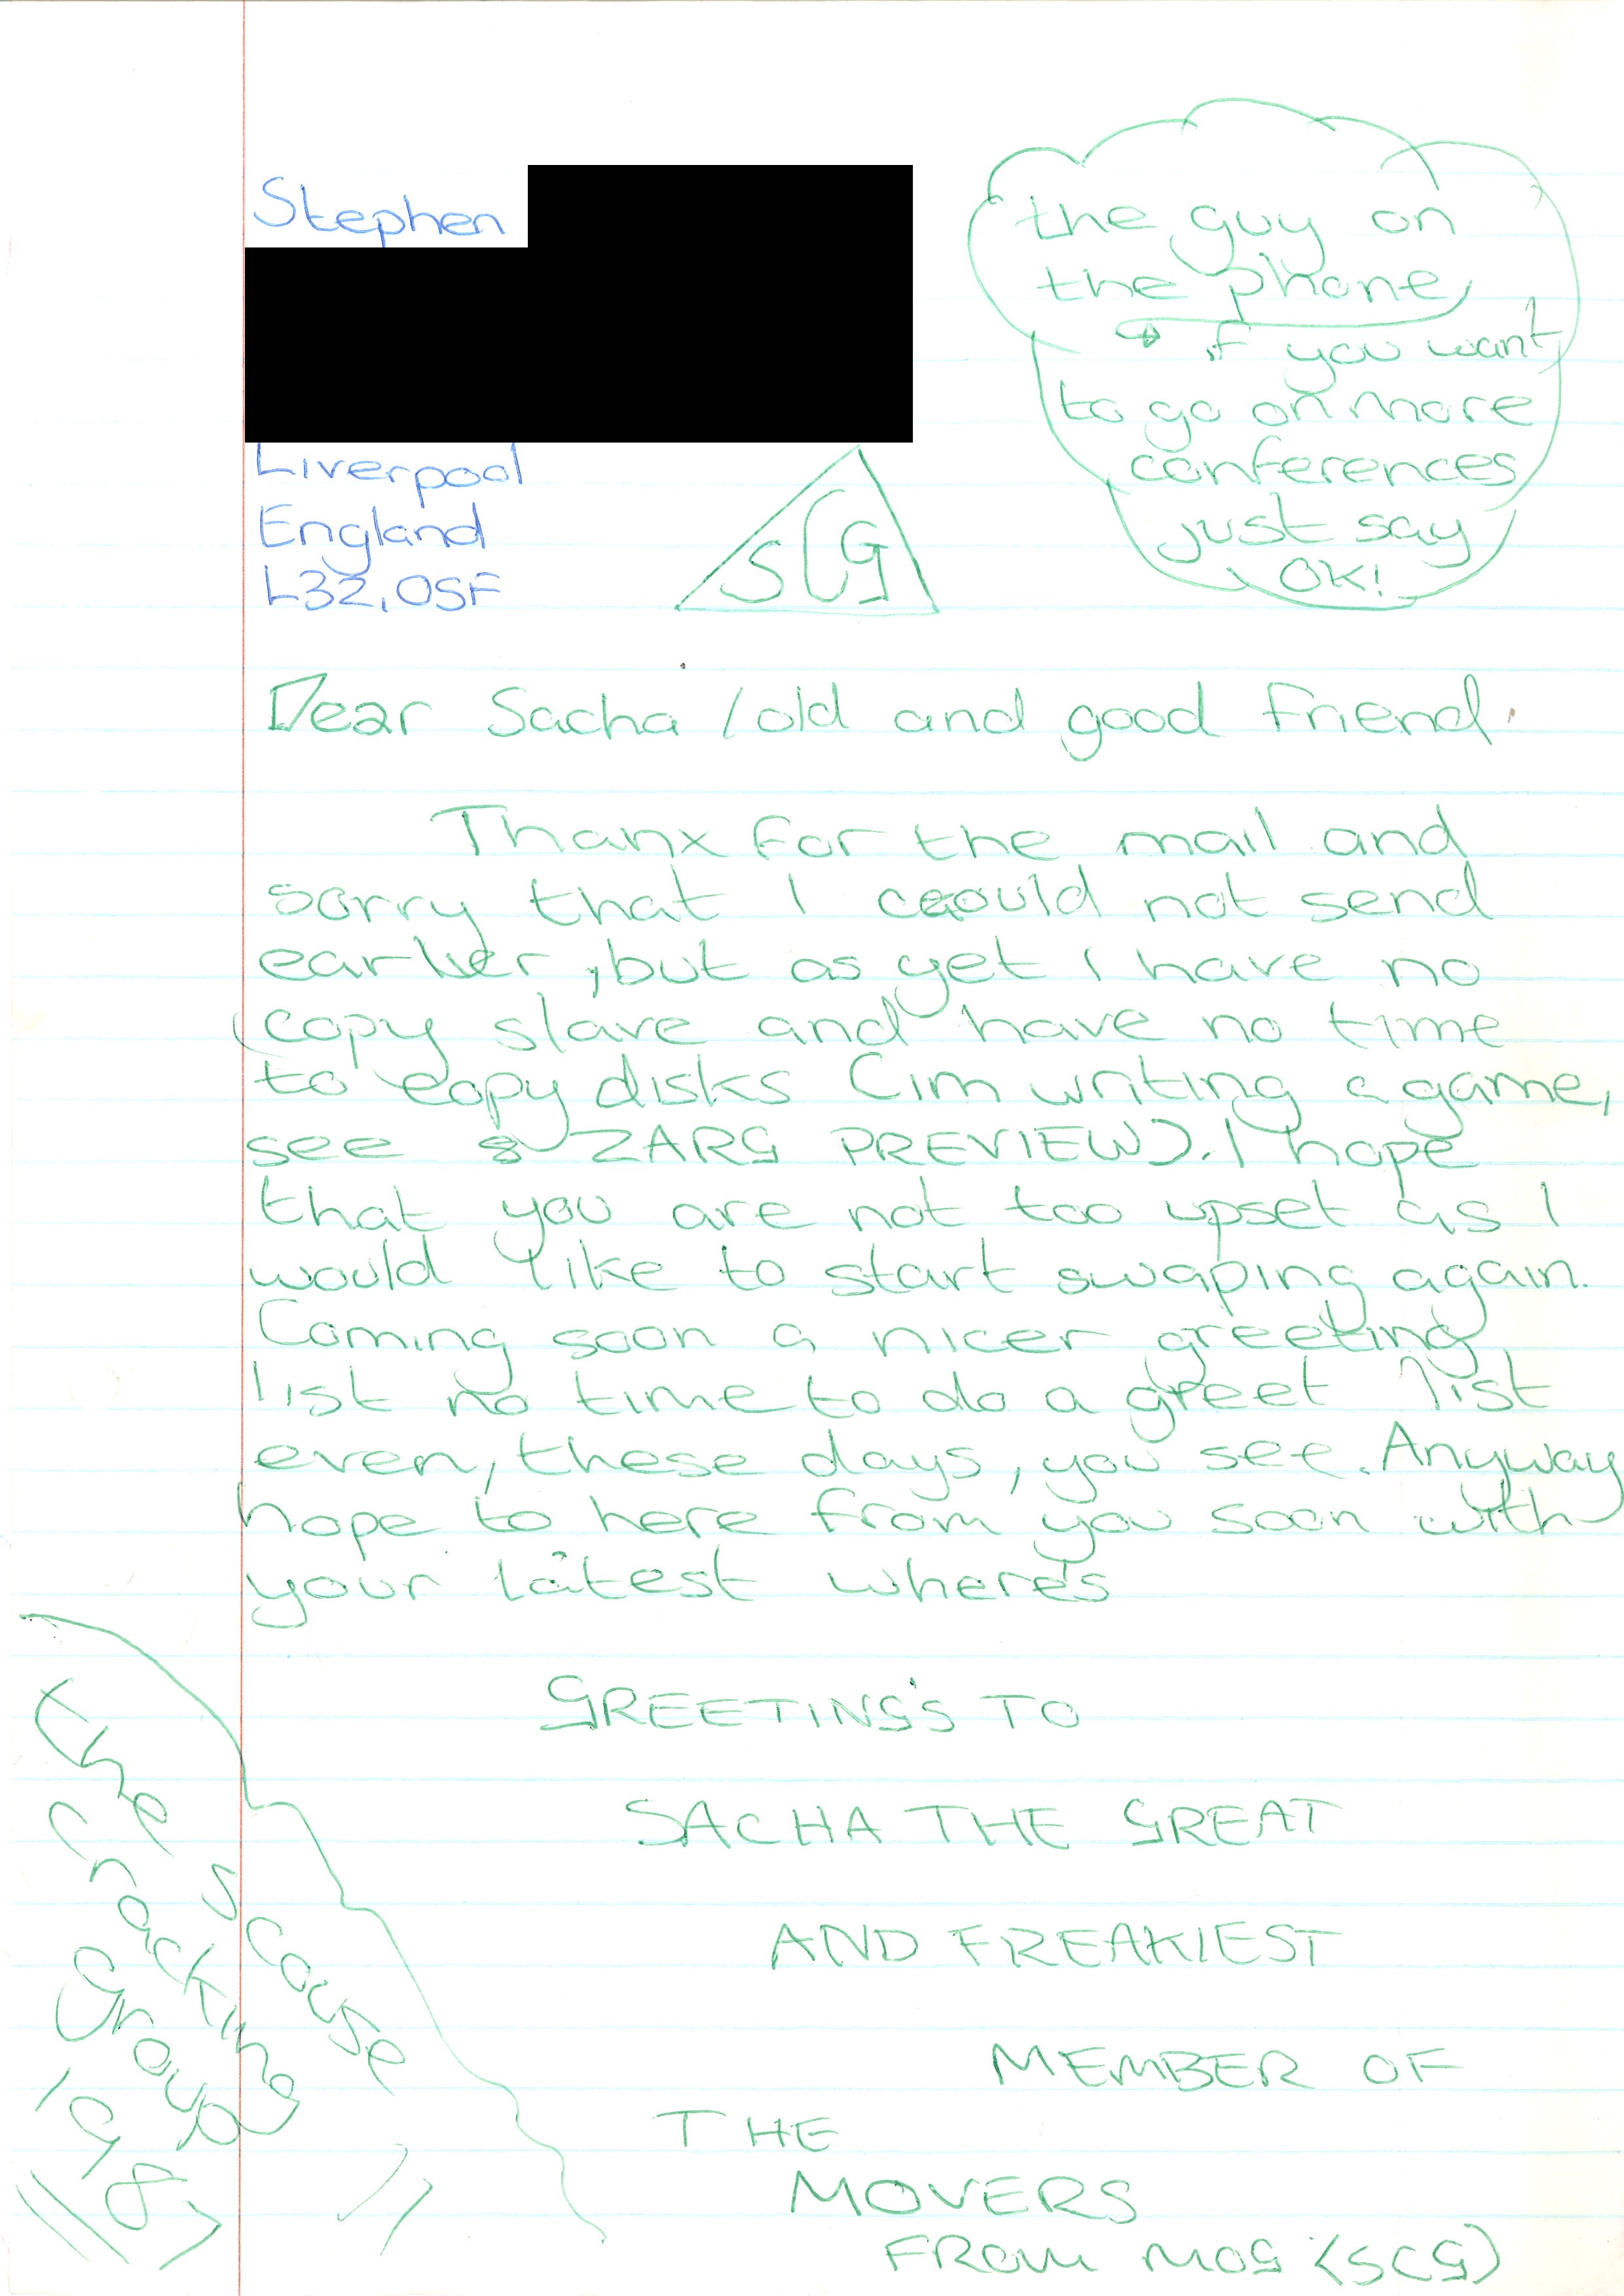 Stephen
Liverpool
England
L32, OSF
SCG
the guy on
the phone,
→ if you want
to go on more
conferences
just say
OK!
Dear Sacha / old and good friend.
Thanx for the mail and
sorry that I could not send
earlier, but as yet I have no
copy slave and have no time
to copy disks (im writing a game,
see ZARG PREVIEW). I hope
that you are not too upset as I
would like to start swaping again.
Coming soon a nicer greeting
list no time to do a greet list
even, these days, you see. Anyway
hope to here from you soon with
your latest where's
GREETING'S TO
SACHA THE GREAT
AND FREAKIEST
MEMBER OF
THE
MOVERS
FROM MOG (SCG)
the scouse
cracking
Group
1987